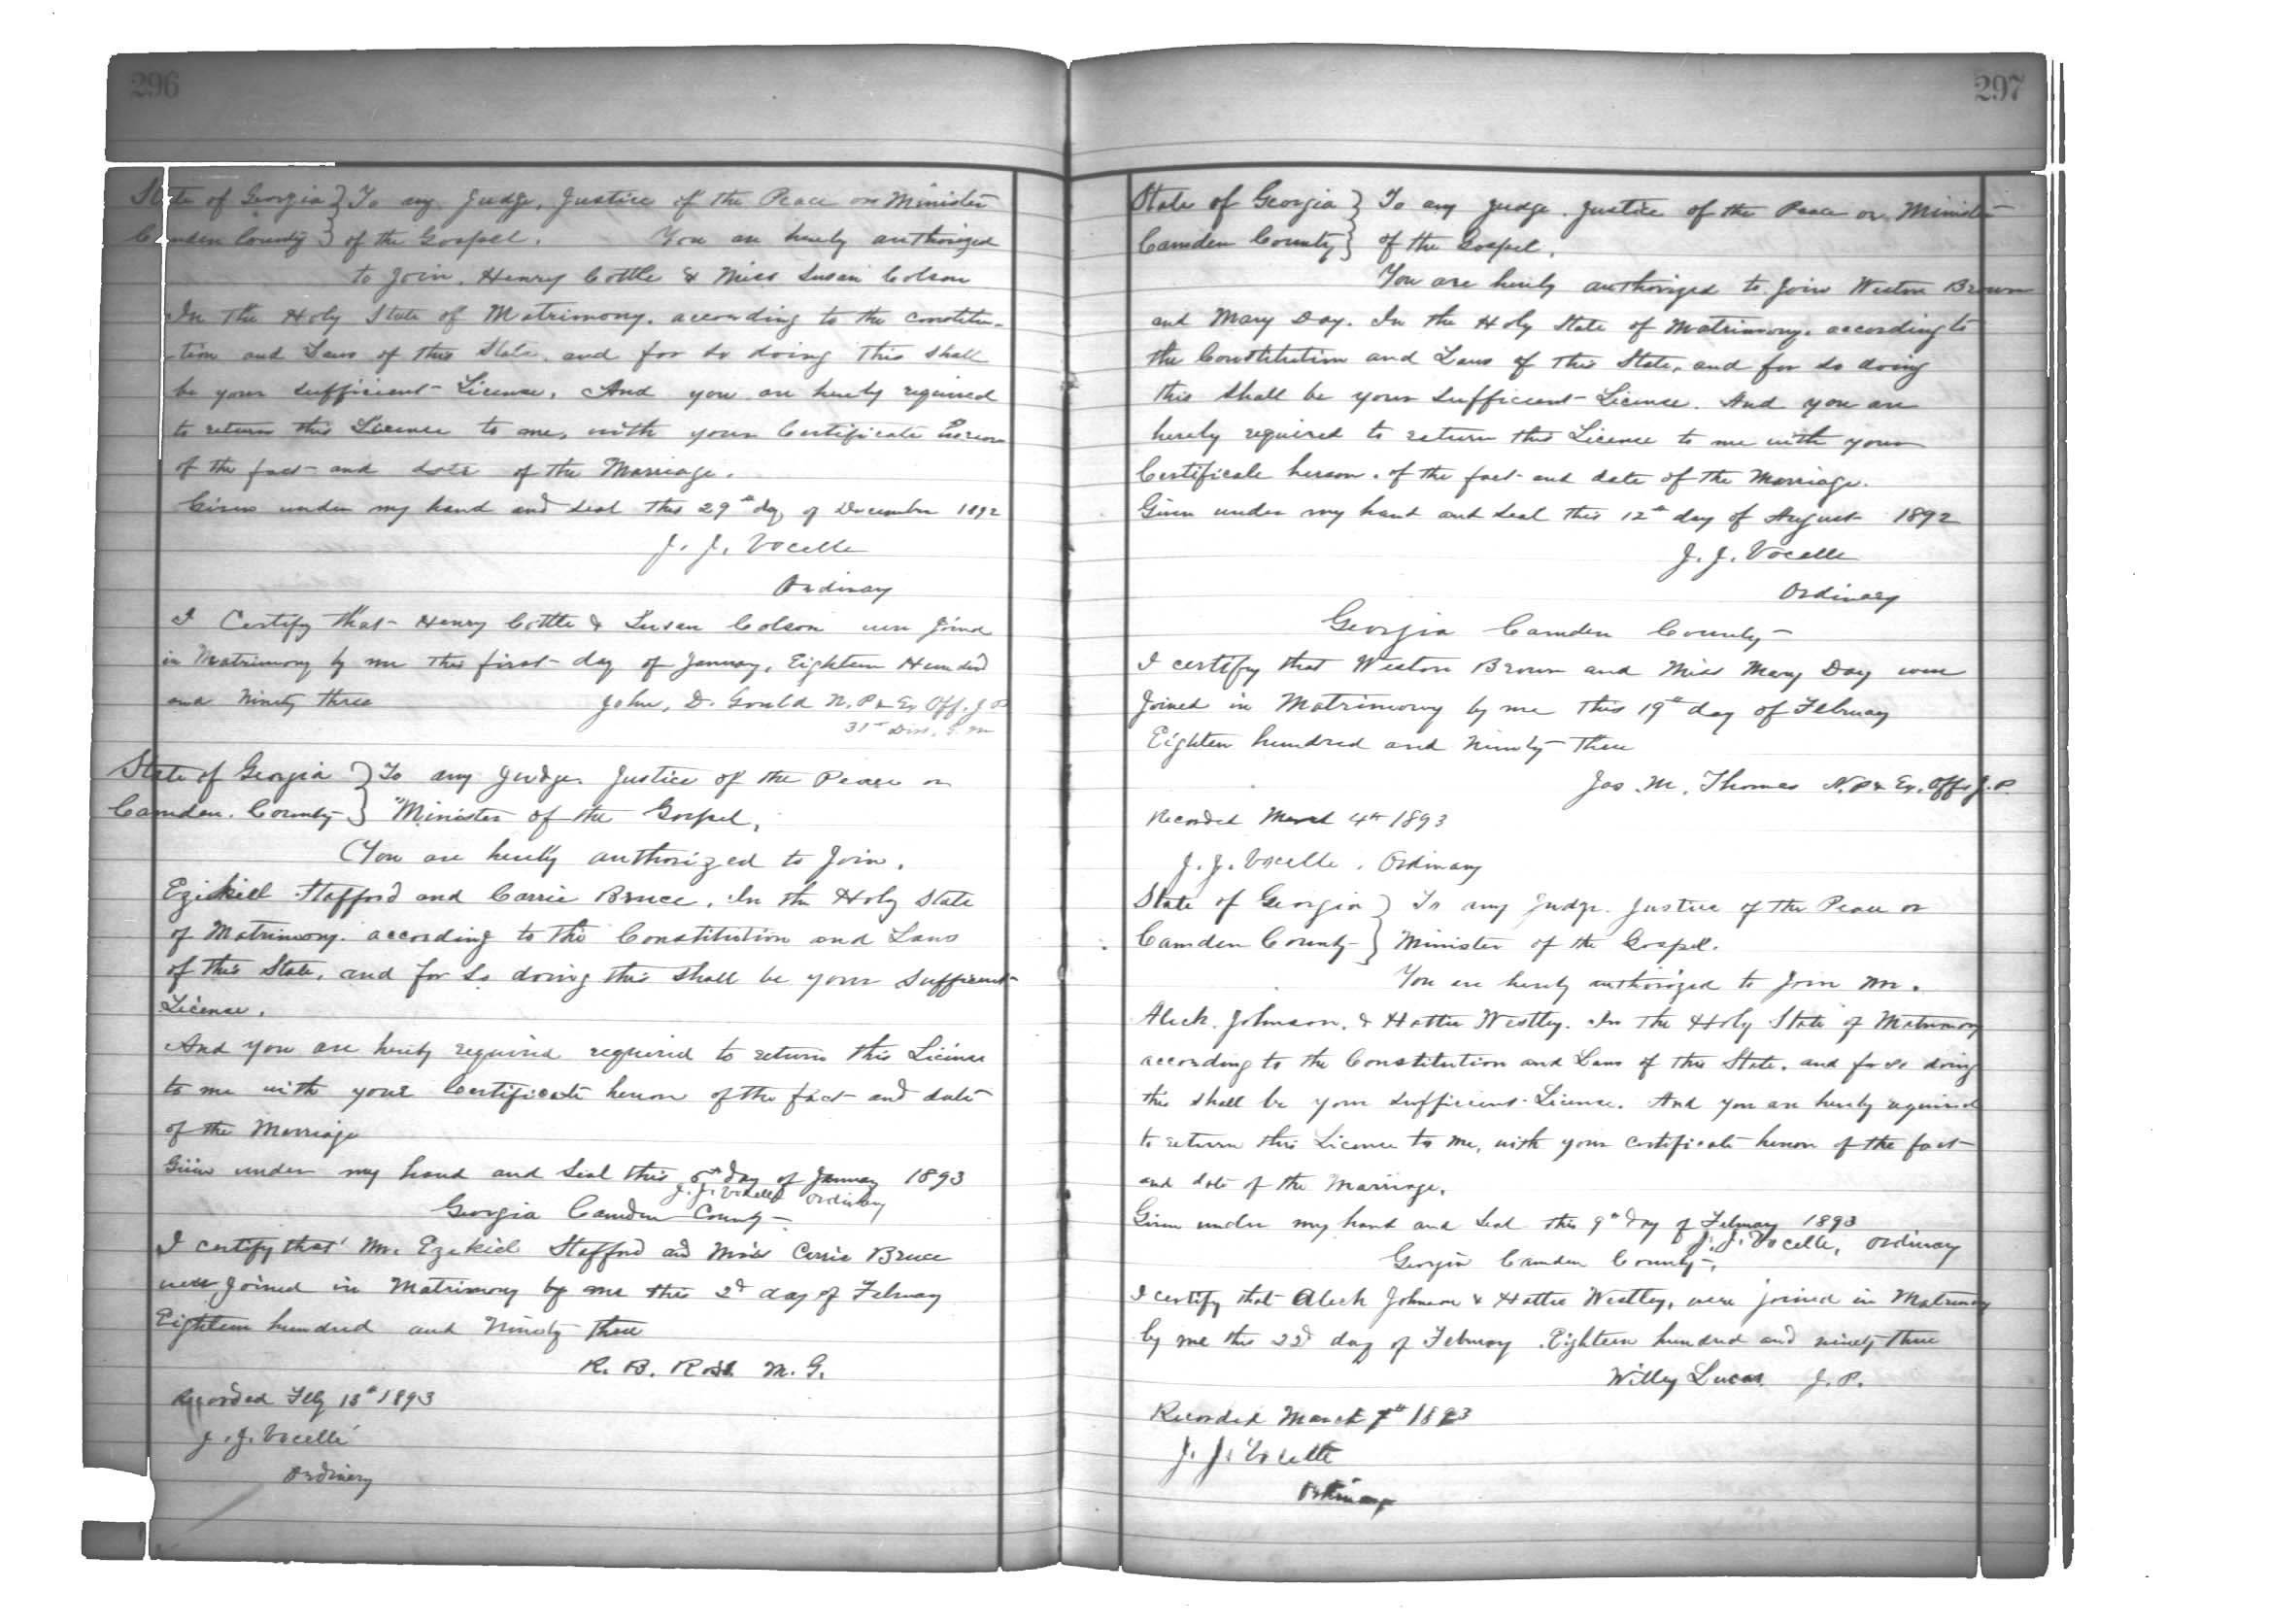 296
State of Georgia } To any Judge, Justice of the Peace or Minister
Camden County } of the Gospel. You are hereby authorized
to Join, Henry Cottle & Miss Susan Colson
In the Holy State of Matrimony, according to the constitu-
tion and Laws of this State, and for so doing this shall
be your sufficient License. And you are hereby required
to return this License to me, with your Certificate hereon
of the fact and date of the Marriage.
Given under my hand and seal this 29th day of December 1892
J. J. Vocelle
Ordinary
I Certify that Henry Cottle & Susan Colson were Joined
in Matrimony by me this first day of January, Eighteen Hundred
and Ninety three John, D. Gould N. P & Ex Off. J P
31st Dist. G. M
State of Georgia } To any Judge. Justice of the Peace or
Camden. County } Minister of the Gospel,
You are hereby authorized to Join.
Ezikiell Stafford and Carrie Bruce. In the Holy State
of Matrimony. according to the Constitution and Laws
of this State, and for so doing this shall be your sufficient
License.
And you are hereby required required to return this License
to me with your Certificate hereon of the fact and date
of the Marriage
Given under my hand and seal this 5th day of January 1893
J. J. Vocelle Ordinary
Georgia Camden County.
I certify that Mr. Ezekiel Stafford and Miss Carrie Bruce
were Joined in Matrimony by me this 2d day of February
Eighteen hundred and Ninety three
R. B. Ross M. G.
Recorded Feby 13th 1893
J. J. Vocelle
Ordinary
297
State of Georgia } To any Judge. Justice of the Peace or Minister
Camden County } of the Gospel.
You are hereby authorized to Join Weston Brown
and Mary Day. In the Holy State of Matrimony. according to
the Constitution and Laws of this State, and for so doing
this shall be your sufficient License. And you are
hereby required to return this License to me with your
Certificate hereon. of the fact and date of the Marriage.
Given under my hand and seal this 12th day of August 1892
J. J. Vocelle
Ordinary
Georgia Camden County
I certify that Weston Brown and Miss Mary Day were
Joined in Matrimony by me this 19th day of February
Eighteen hundred and Ninety Three
Jas. M. Thomas N. P & Ex. Off. J. P.
Recorded March 4th 1893
J. J. Vocelle. Ordinary
State of Georgia } To any Judge. Justice of the Peace or
Camden County } Minister of the Gospel.
You are hereby authorized to Join Mr.
Aleck. Johnson. & Hattie Westley. In the Holy State of Matrimony
according to the Constitution and Laws of this State. and for so doing
this shall be your sufficient License. And you are hereby required
to return this License to me, with your certificate hereon of the fact
and date of the Marriage.
Given under my hand and seal this 9th day of February 1893
J. J. Vocelle, Ordinary
Georgia Camden County.
I certify that Aleck Johnson & Hattie Westley, were joined in Matrimony
by me this 22d day of February. Eighteen hundred and ninety three
Willey Lucas J. P.
Recorded March 7th 1893
J. J. Vocelle
Ordinary